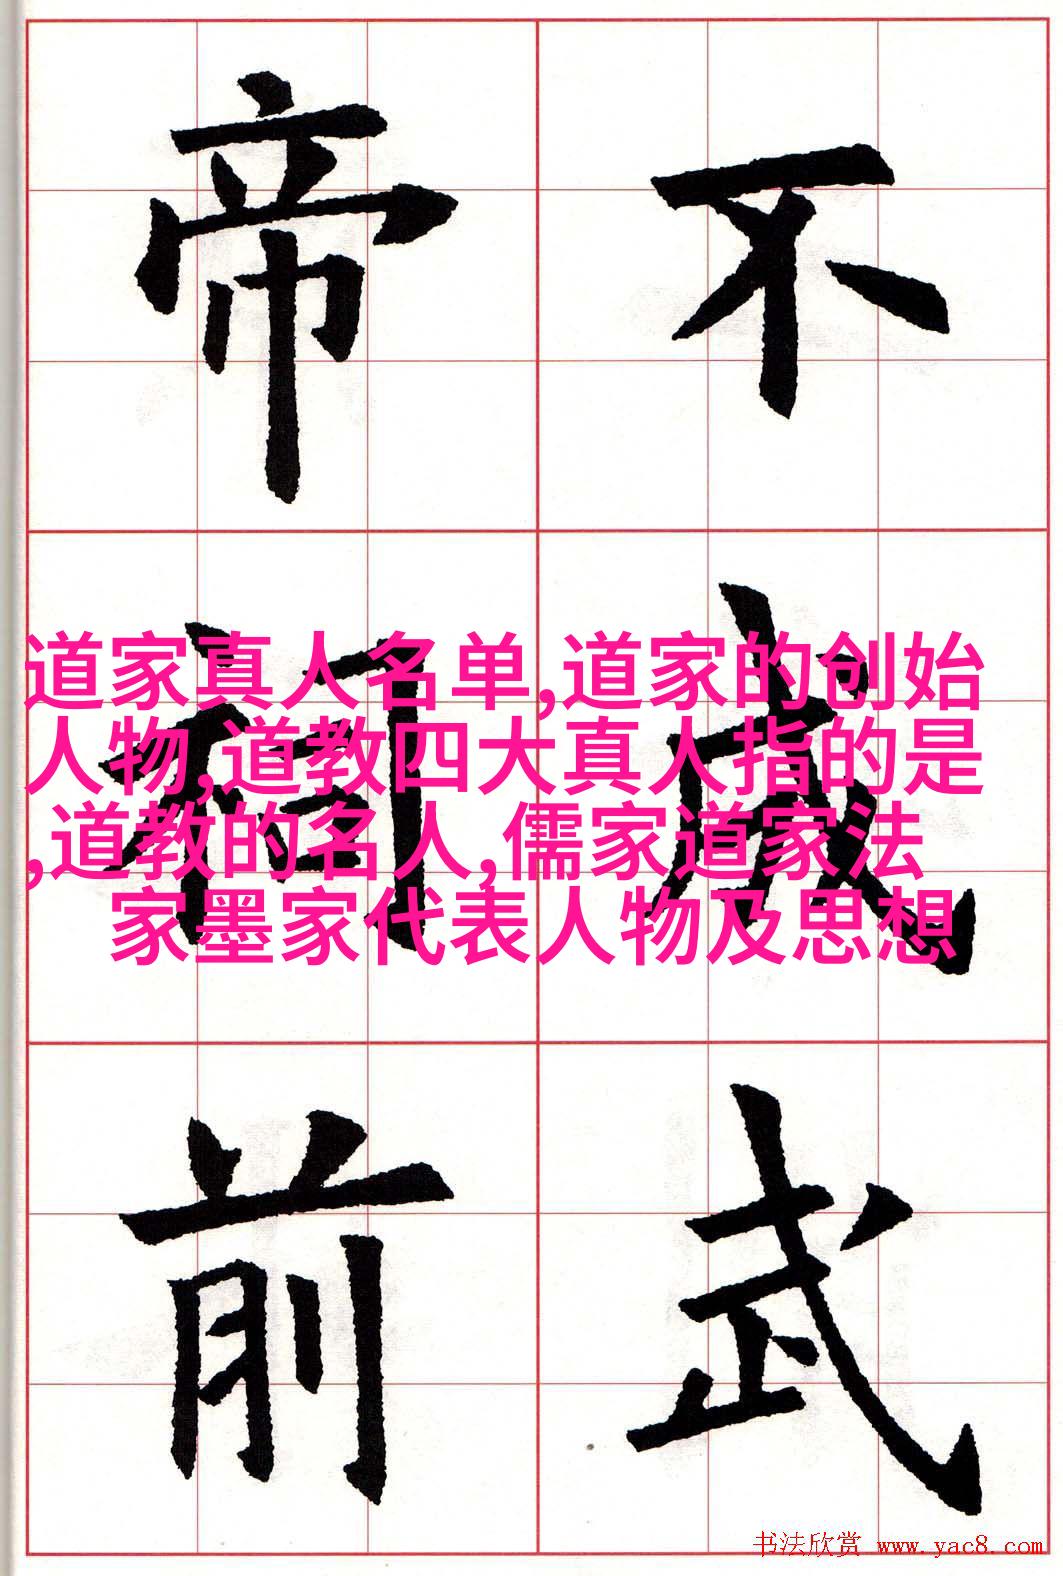 不武
帝祠前
道家真人名单,道家的创始
人物,道教四大真人指的是
,道教的名人,儒家道家法
家墨家代表人物及思想
书法欣赏 www.yac8.com